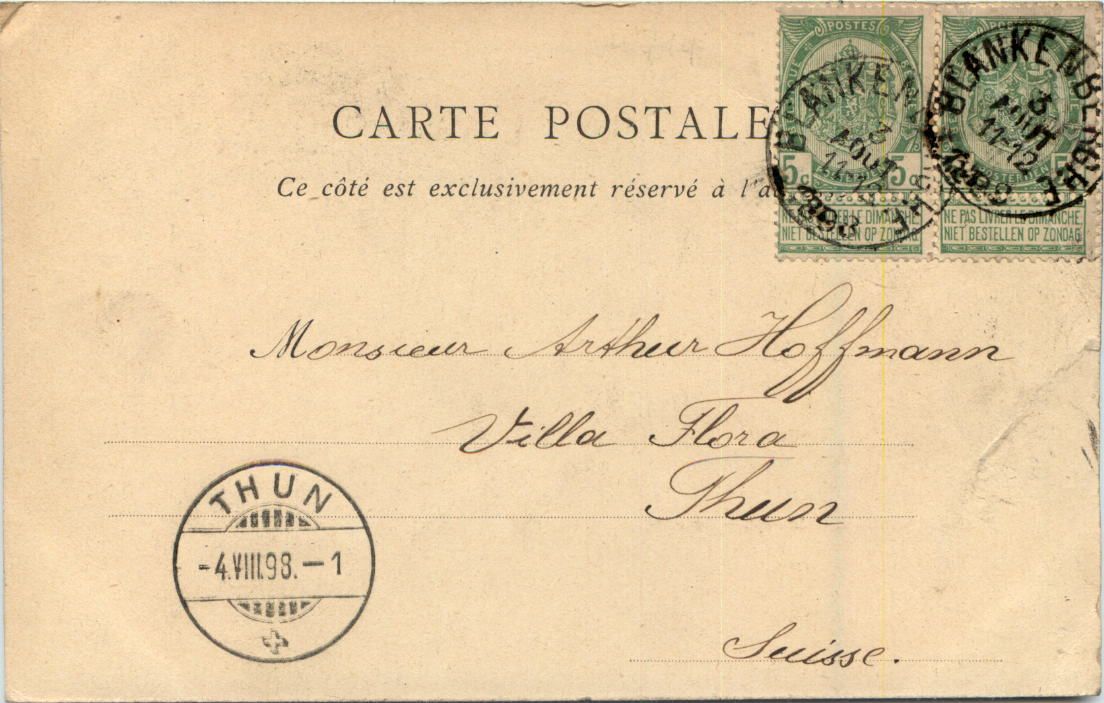 CARTE POSTALE
Ce côté est exclusivement réservé à l'a
POSTES
5c 5c
NE PAS LIVRER LE DIMANCHE
NIET BESTELLEN OP ZONDAG
BLANKENBERGHE
3
AOUT
11-12
1898
NE PAS LIVRER LE DIMANCHE
NIET BESTELLEN OP ZONDAG
BLANKENBERGHE
3
AOUT
11-12
1898
Monsieur Arthur Hoffmann
Villa Flora
Thun
Suisse.
THUN
-4.VIII.98.-1